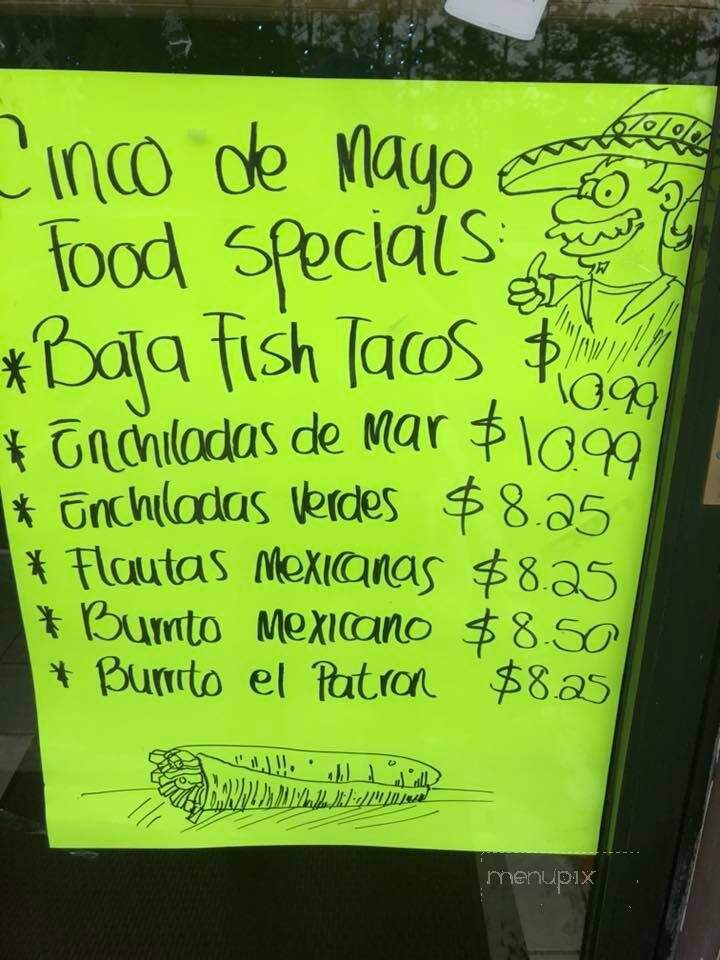 Cinco de Mayo
Food Specials:
* Baja Fish Tacos $10.99
* Enchiladas de Mar $10.99
* Enchiladas Verdes $8.25
* Flautas Mexicanas $8.25
* Burrito Mexicano $8.50
* Burrito el Patron $8.25
menupix